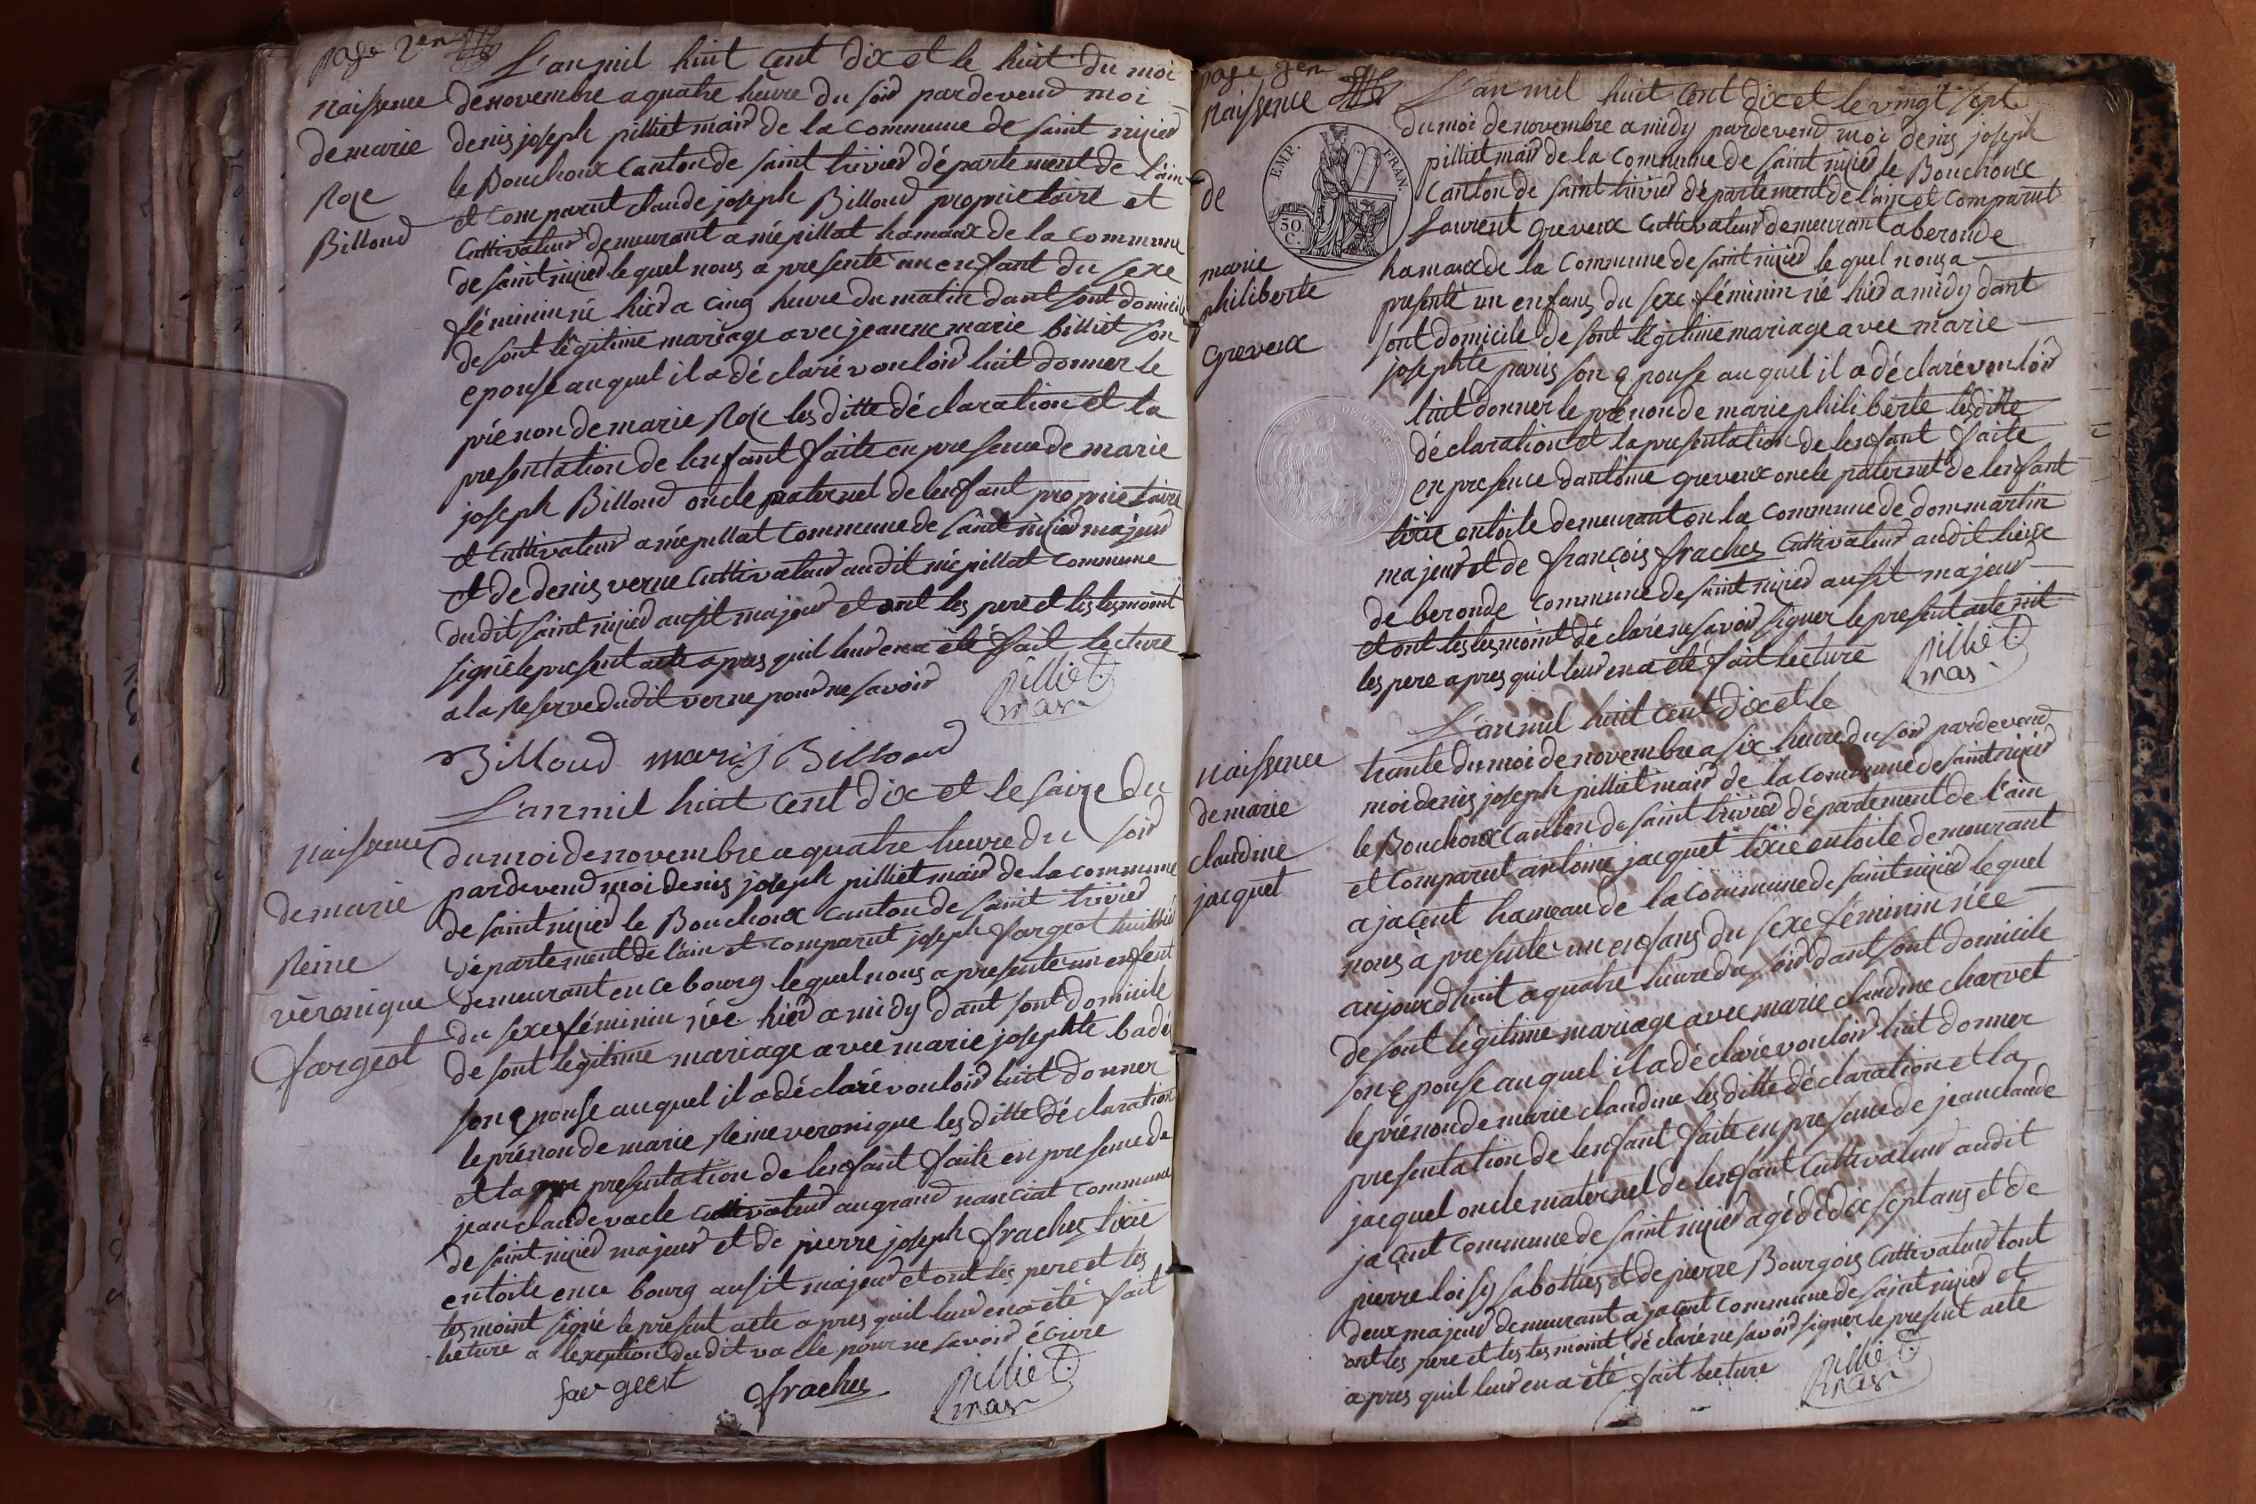 page 2en
L'an mil huit cent dix et le huit du moi
naissence
de marie
Rose
Billoud
de novembre a quatre heure du soir pardevend moi
denis joseph pilliet mair de la commune de saint nizier
le Bouchoux canton de saint trivier département de l'ain
et comparut claude joseph Billoud proprietaire et
cuttivateur demeurant a mépillat hamaux de la commune
de saint nizier le quel nous a presenté un enfant du sexe
féminin né hier a cinq heure du matin dant sont domicile
de sont légitime mariage avec jeanne marie billiet son
epouse au quel il a déclaré vouloir luit donner le
prénon de marie Rose les ditte déclaration et la
presentation de lenfant faite en presence de marie
joseph Billoud oncle paternel de lenfant proprietaire
et cuttivateur a mépillat commune de saint nizier majeur
et de denis verne cuttivateur audit mépillat commune
dudit saint nizier ausit majeur et ont les pere et les tesmoint
signé le present acte apres quil leur en a été fait lecture
a la Reserve dudit verne pour ne savoir
pilliet
mar
Billoud marij Billoud
L'an mil huit cent dix et le saize du
naissence
de marie
Reine
véronique
fargeot
du moi de novembre a quatre heure du soir
pardevend moi denis joseph pilliet mair de la commune
de saint nizier le Bouchoux canton de saint trivier
département de l'ain et comparut joseph fargeot huillié
demeurant en ce bourg le quel nous a presenté un enfent
du sexe féminin née hier a midy dant sont domicile
de sont légitime mariage avec marie josephte badé
son epouse au quel il a déclaré vouloir luit donner
le prénon de marie Reine veronique les ditte déclaration
et la presentation de lenfant faite en presence de
jean claude vacle cuttivateur au grand nanciat commune
de saint nizier majeur et de pierre joseph frachet tixié
en toile en ce bourg ausit majeur et ont les pere et les
tesmoint signé le présent acte apres quil leur en a été fait
lecture a lexeption du dit vacle pour ne savoir écrire
fargeot frachet pilliet
mar
page 3en
naissence
de
marie
philiberte
greveux
EMP. FRAN.
50.
C.
L'an mil huit cent dix et le vingt sept
du moi de novembre a midy pardevend moi denis joseph
pilliet mair de la commune de saint nizier le Bouchoux
canton de saint trivier département de l'ain et comparut
Laurent greveux cuttivateur demeurant a beronde
hamaux de la commune de saint nizier le quel nous a
presenté un enfans du sexe féminin né hier a midy dant
sont domicile de sont légitime mariage avec marie
josephte paris son epouse au quel il a déclaré vouloir
luit donner le prénon de marie philiberte les ditte
déclaration et la presentation de lenfant faite
en presence dantoine greveux oncle paternel de lenfant
tixie en toile demeurant en la commune de dommartin
majeur et de françois frachet cuttivateur au dit lieux
de beronde commune de saint nizier ausit majeur
et ont les tesmoint déclaré ne savoir signer le present acte nit
les pere apres quil leur en a été fait lecture
pilliet
mar
L'an mil huit cent dix et le
naissence
de marie
claudine
jacquet
trante du moi de novembre a six heure du soir pardevend
moi denis joseph pilliet mair de la commune de saint nizier
le Bouchoux canton de saint trivier département de l'ain
et comparut antoine jacquet tixie en toile demeurant
a jacent hameau de la commune de saint nizier le quel
nous a presenté un enfans du sexe féminin née
aujourdhuit a quatre heure du soir dant sont domicile
de sont légitime mariage avec marie claudine charvet
son epouse au quel il a déclaré vouloir luit donner
le prénon de marie claudine les ditte déclaration et la
presentation de lenfant faite en presence de jean claude
jacquet oncle maternel de lenfant cuttivateur audit
jacent commune de saint nizier agé de dix sept ans et de
pierre loisy sabottier et de pierre Bourgois cuttivateur tout
deux majeur demeurant a jacent commune de saint nizier et
ont les pere et les tesmoint déclaré ne savoir signer le present acte
apres quil leur en a été fait lecture
pilliet
mar